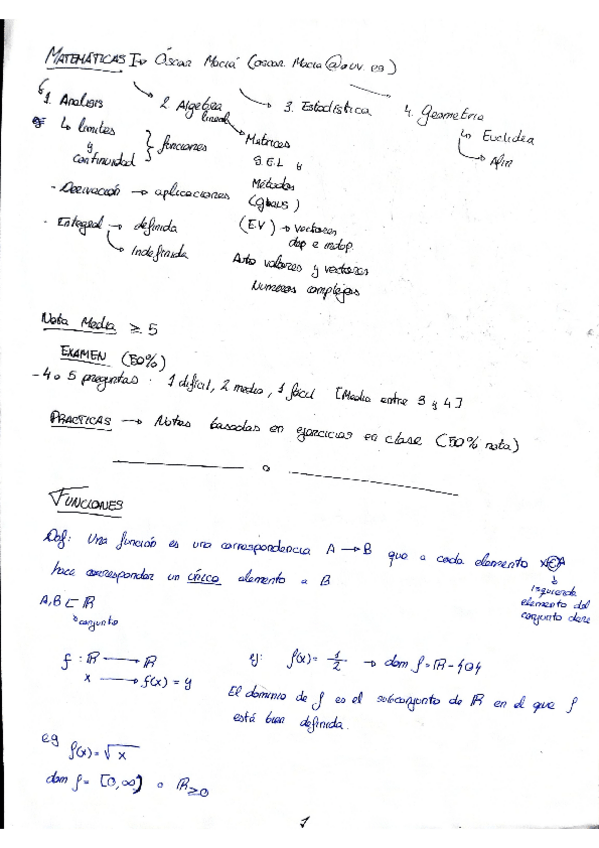 MATEMÁTICAS I → Óscar Maciá (oscar.macia@uv.es)
1. Analisis
2. Algebra lineal
3. Estadística
4. Geometria
↳ Euclidea
→ Afín
ej ↳ limites y continuidad } funciones
- Derivación → aplicaciones
- Entegral → definida
↳ Indefinida
Matrices
S.E.L y
Métodos
(Gauss)
(E.V) → vectores
dep e indep.
Auto valores y vectores
Numeros complejos
Nota Media ≥ 5
EXAMEN (50%)
- 4 o 5 preguntas. 1 difícil, 2 medio, 1 fácil [Media entre 3 y 4]
PRACTICAS → Notas basadas en ejercicios en clase (50% nota)
FUNCIONES
Def: Una función es una correspondencia A → B que a cada elemento x∈A
hace corresponder un único elemento a B
izquierda
elemento del
conjunto
A,B ⊂ ℝ
conjunto
f : ℝ → ℝ
x → f(x) = y
ej: f(x) = 1/2 → dom f = ℝ - {0}
El dominio de f es el subconjunto de ℝ en el que f
está bien definida.
eg f(x) = √x
dom f = [0,∞) o ℝ≥0
1